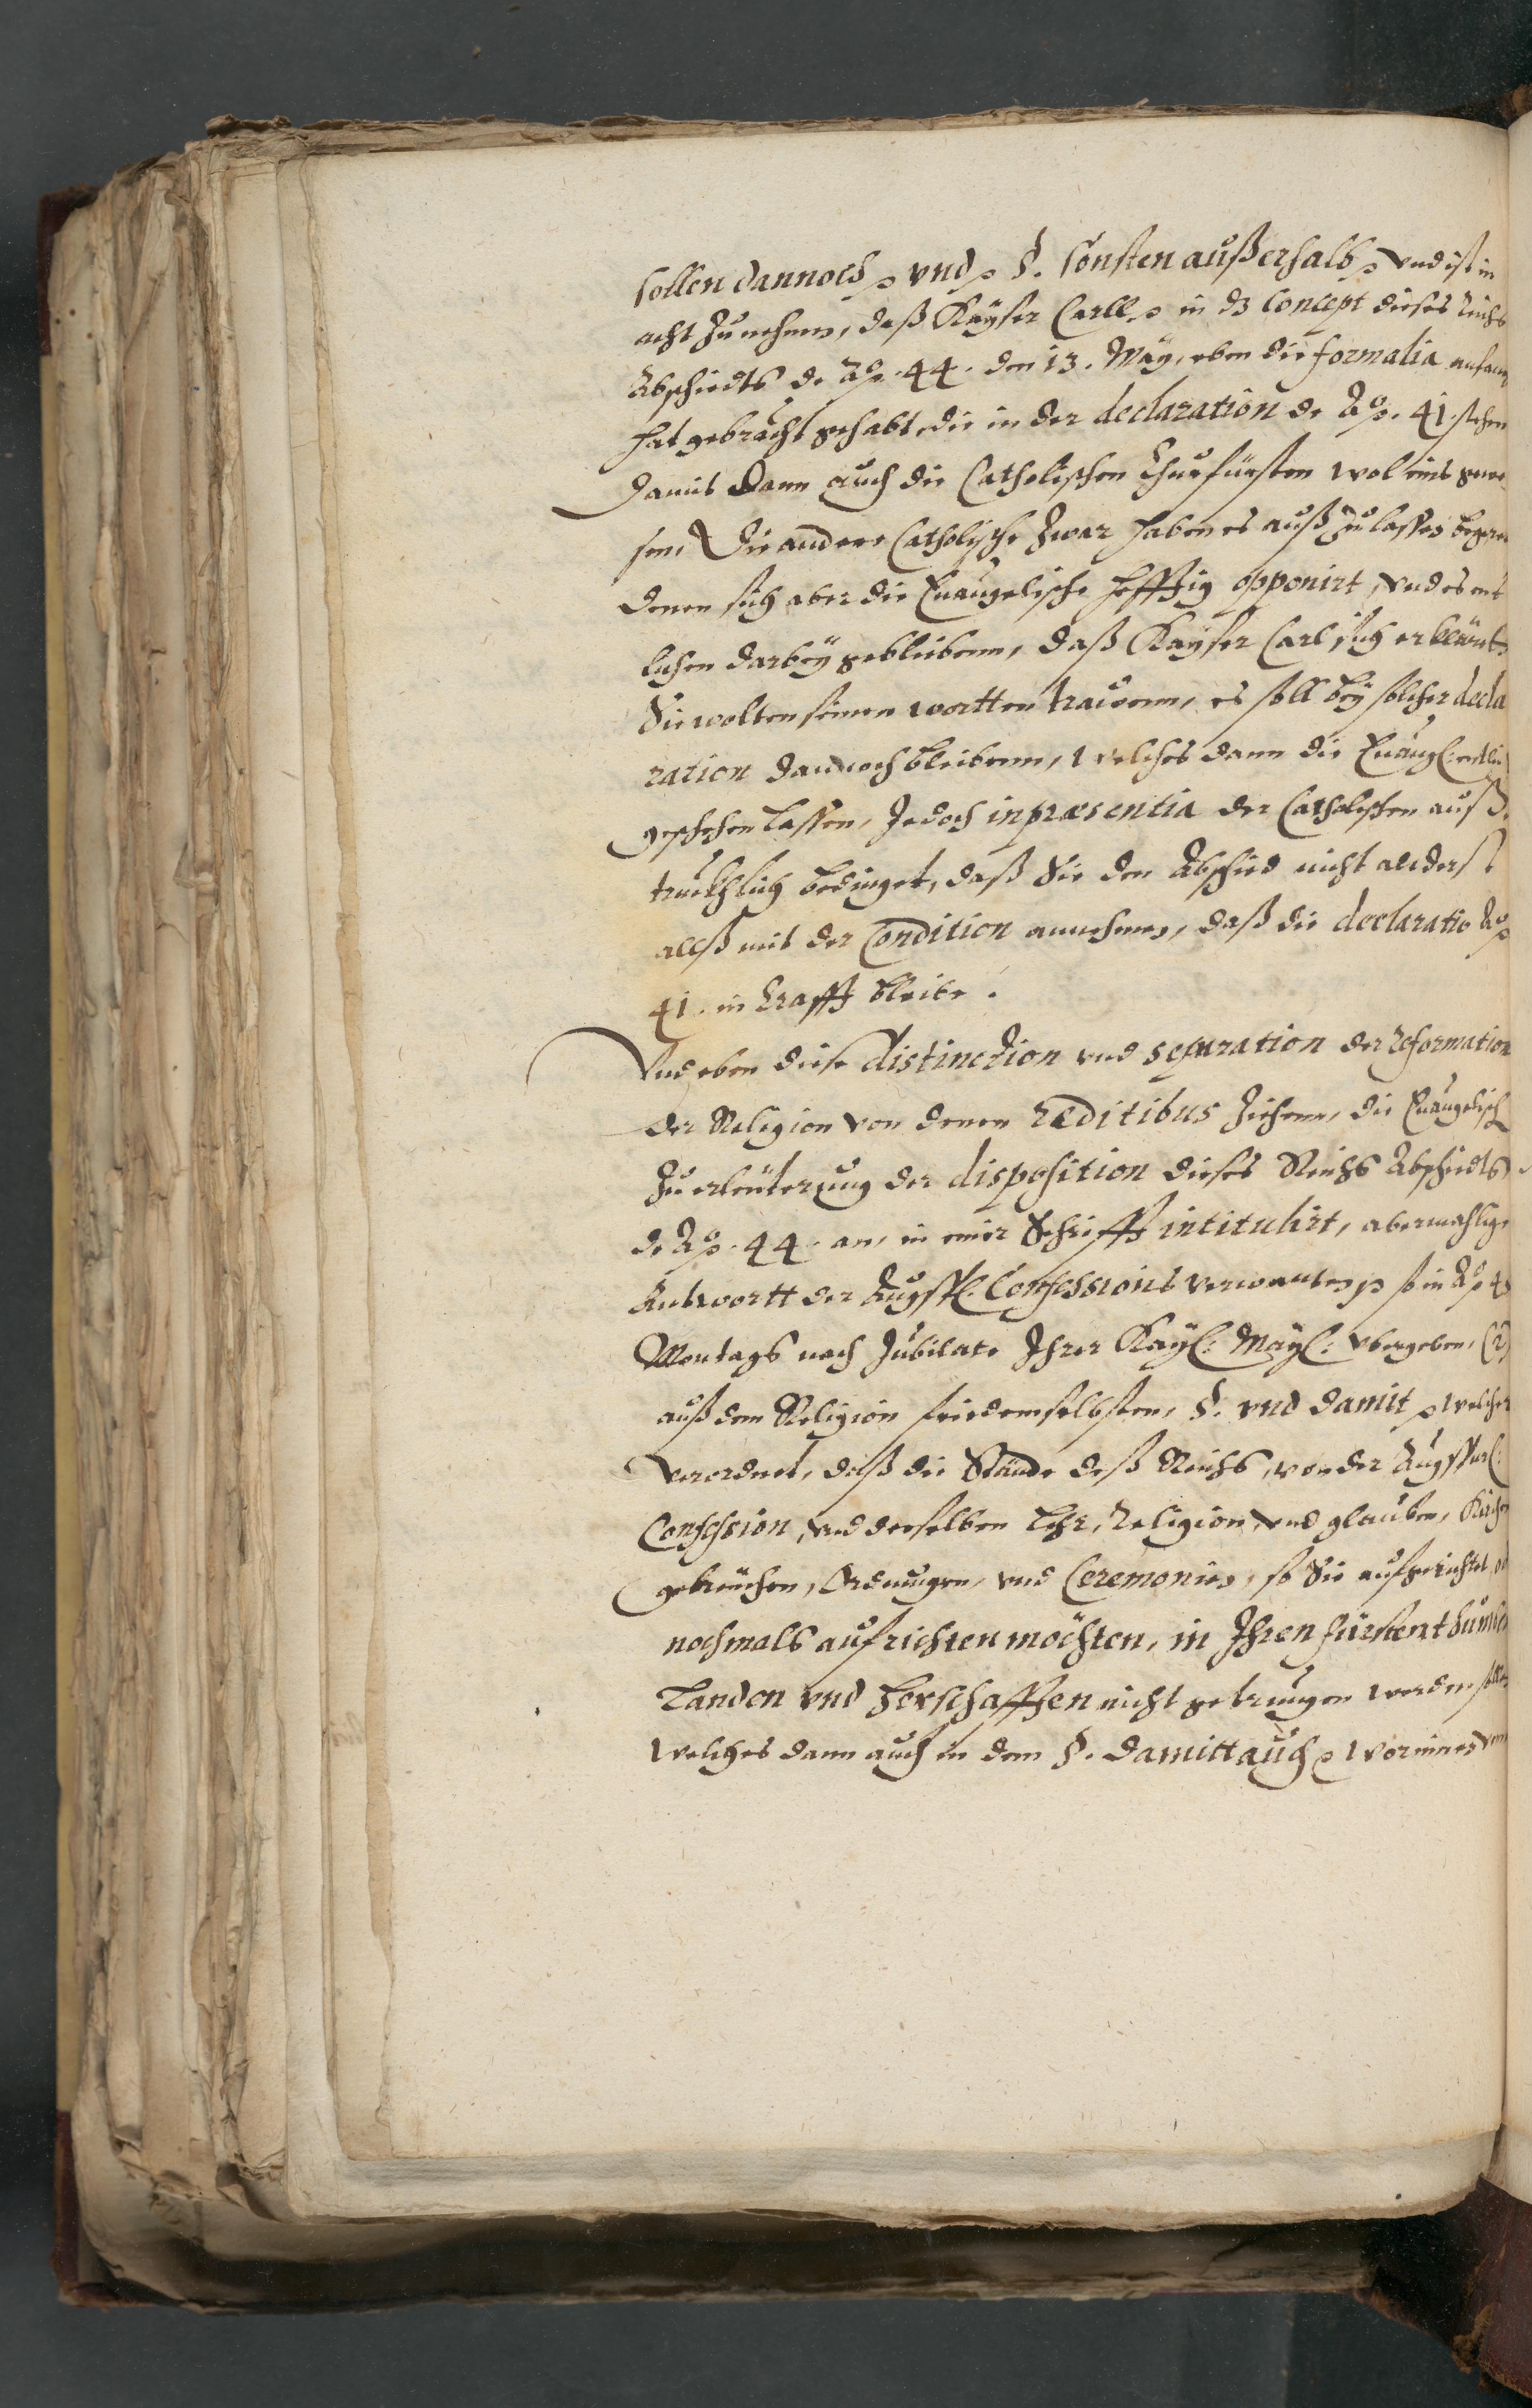 sollen dannoch ꝛc vnd ꝛc §. Sonsten außerhalb ꝛc vnd ist in
acht Zunehmen, daß Kayser Carll ꝛc in dz Concept dieses Reichs
Abschiedts de Aō. 44. den 13. May, eben die formalia anfangs
hat gebracht gehabt, die in der declaration de Aō. 41. stehen
Damit dann auch die Catholischen Churfürsten wol eins gewe-
sen, Die andere Catholische Zwar haben es auß Zulassen begeret
denen sich aber die Euangelische hefftig opponirt, vnd es ent
lichen darbey geblieben, daß Kayser Carl sich erklärt,
Sie wolten seinen wortten trauen, es soll bey solcher decla
ration dannoch bleiben, welches dann die Euangl: endlich
geschehen lassen, Jedoch in præsentia der Catholischen auß-
truckhlich bedinget, daß Sie den Abschied nicht anderst
allß mit der Condition annehmen, daß die declaratio Aō
41. in krafft bleibe.
Vnd eben diese distinction vnd separation der reformation
der Religion von denen reditibus Ziehen, die Euangelisch
Zu erleuterung der disposition dieses Reichs Abschiedts
de Aō. 44. an, in einer Schrifft intitulirt, abermahlige
Antwortt der Augsp: Confessions verwanten ꝛc so in Aō
Montags nach Jubilate Ihrer Kayl: Mayl: vbergeben, (2)
auß dem Religion frieden selbsten, §. vnd damit ꝛc welcher
verordnet, daß die Stände deß Reichs, von der Augspurl:
Confession, vnd derselben Lehr, Religion, vnd glauben, Kirchen
gebreuchen, Ordnungen, vnd Ceremonien, so Sie aufgerichtet od
nochmals aufrichten möchten, in Ihren fürstenthumben
Landen vnd herschafften nicht getrungen werden sollen
welches dann auch in dem §. damitt auch ꝛc worinnen von